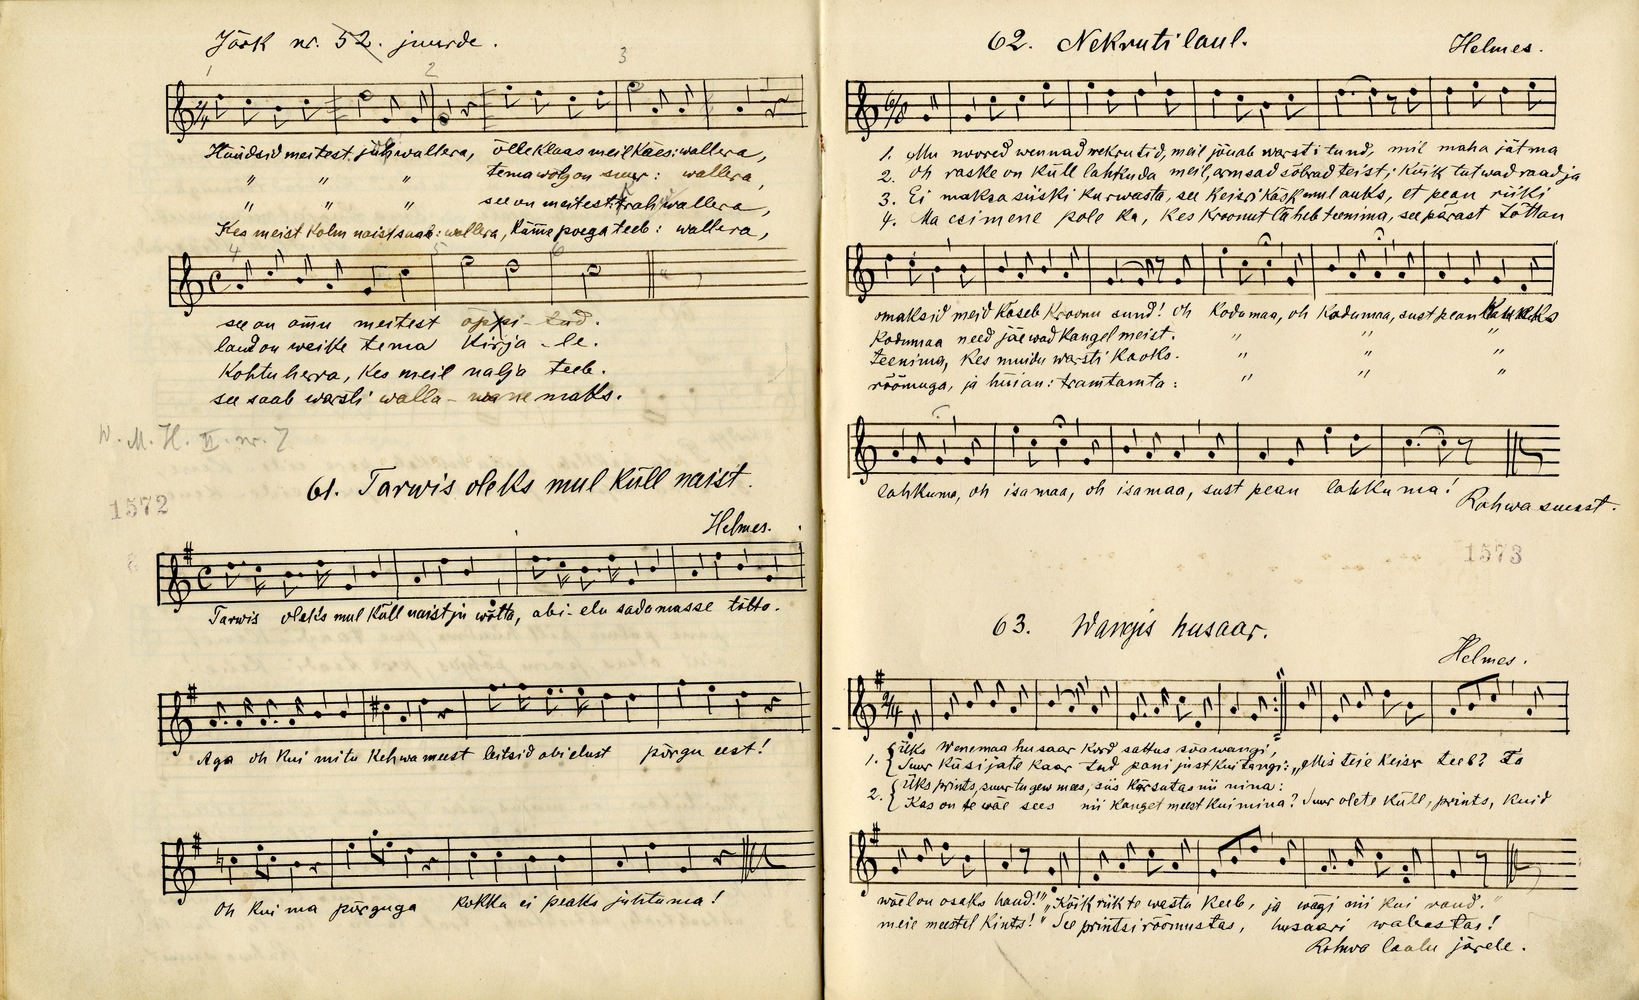 Järk nr. 52. juurde.
1 2 3
Hüüdsid meitest: juh wallera, õlleklaas meil käes: wallera,
" " " tema wõlg on suur: wallera,
" " " see on meitest: trah wallera,
Kes meist kolm naist saab: wallera, kümme poega teeb: wallera,
4 5 6
see on omu meitest oppi - tud.
laud on weike tema kirja - le.
kohtuherra, kes meil nalja teeb.
see saab warsti walla - wane maks.
W. M. H. II. nr. 7
61. Tarwis oleks mul küll naist.
1572
Helmes.
Tarwis oleks mul küll naist ju wõtta, abi-elu sadamasse tõtta.
Aga oh kui mitu kehwa meest leitsid abielust põrgu eest!
Oh kui ma põrguga kokku ei peaks juhtuma!
62. Nekruti laul.
Helmes.
1. Mu noored wennad nekrutid, meil jõuab warsti tund, mil maha jätma
2. Oh raske on küll lahkuda meil, armsad sõbrad teist; kõik tutwad raad ja
3. Ei maksa siiski kurwasta, see Keisri käsk mul auks, et pean riiki
4. Ma esimene pole ka, kes kroonut läheb teenima, seepärast tõttan
omaksid meid käseb kroonu sund! Oh kodumaa, oh kodumaa, sust pean
kodumaa need jäewad kangel meist. " " "
teenima, kes muidu warsti kaoks. " " "
rõõmuga, ja hüian: tramtamta: " " "
lahkuma, oh isamaa, oh isamaa, sust pean lahkuma!
Rahwa suust.
1573
63. Wangis husaar.
Helmes.
1. Üks Wenemaa husaar kord sattus sõawangi,
Suur küsijate kaar tad pani just kui tangi: "Mis teie keiser teeb? Ta
2. Üks prints, suur tugew mees, siis kärsutas nii nina:
Kas on te wäe sees nii kanget meest kui mina? Suur olete küll, prints, kuid
wäel on osaks hand!" "Kõik riik te wastu keeb, ja wägi nii kui rand."
meie meestel kints!" See printsi rõõmustas, husaari wabastas!
Rahwa laulu järele.